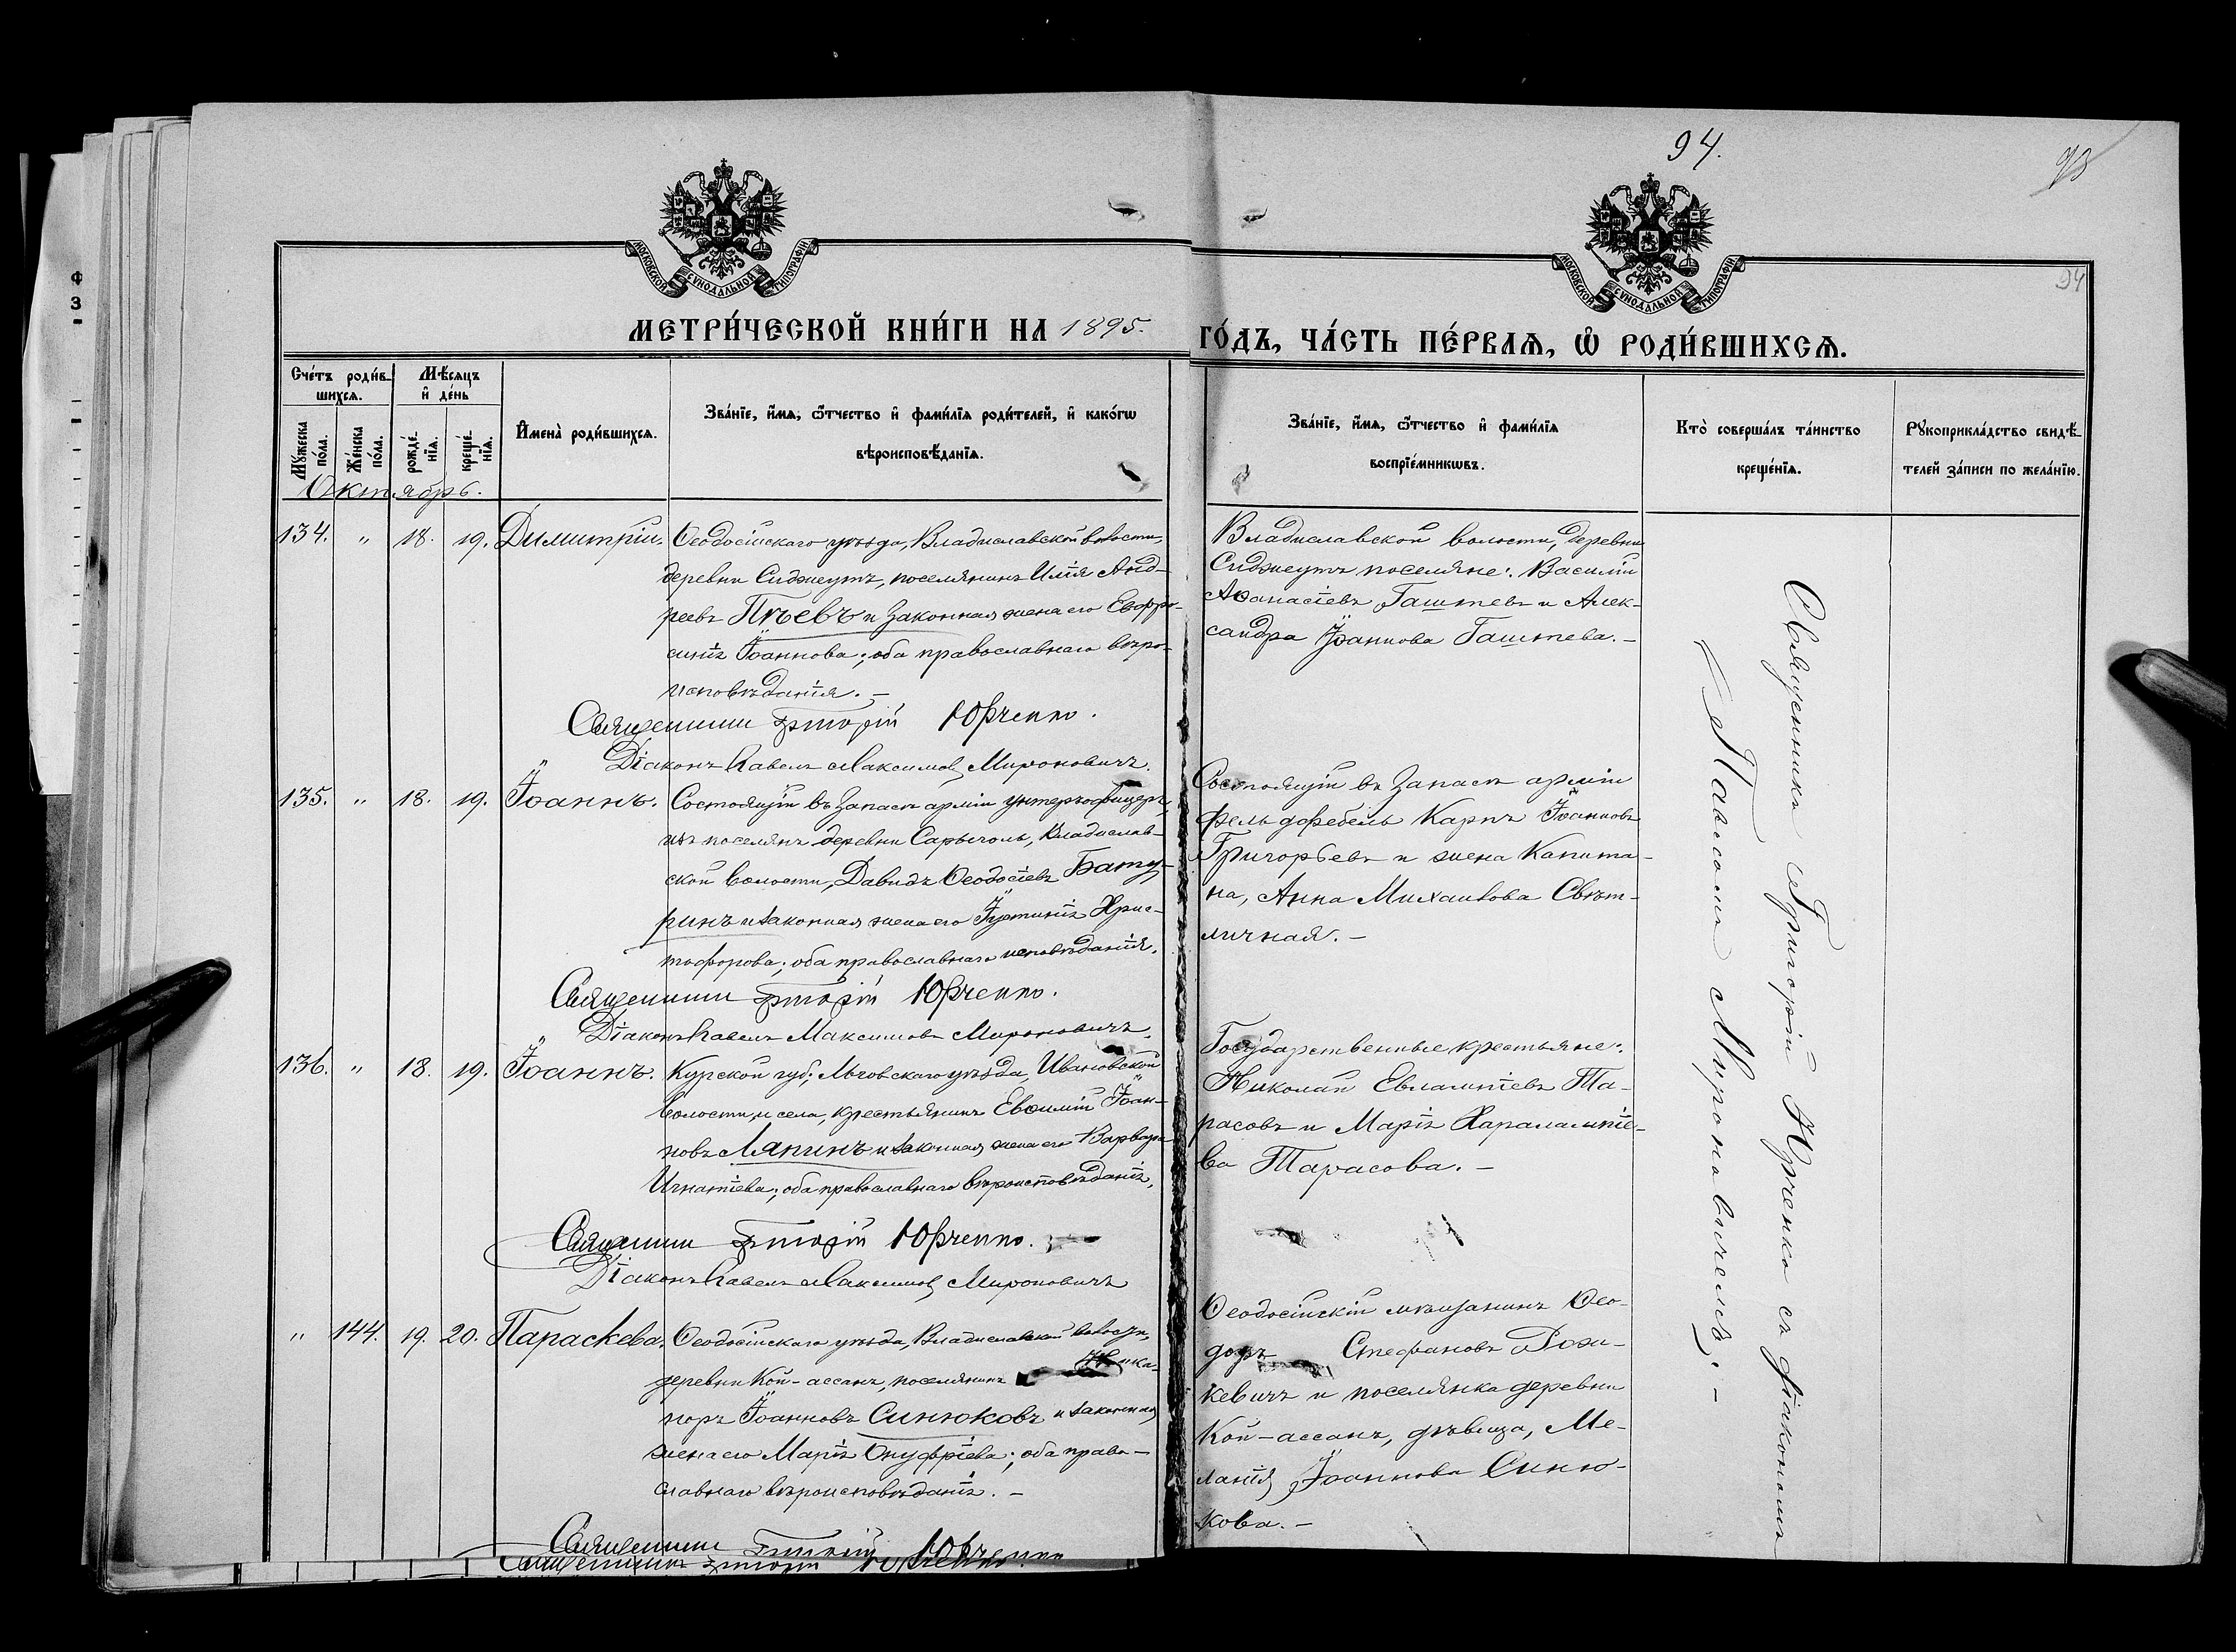 94.
93
94
МОСКОВСКОЙ СѴНОДАЛЬНОЙ ТИПОГРАФІИ
МОСКОВСКОЙ СѴНОДАЛЬНОЙ ТИПОГРАФІИ
МЕТРИ́ЧЕСКОЙ КНИ́ГИ НА 1895. ГО́ДЪ, ЧА́СТЬ ПЕ́РВАѦ, Ѡ҆ РОДИ́ВШИХСѦ.
Сче́тъ роди́в-
шихсѧ.
Мѣ́сѧцъ
и҆ де́нь
Мꙋ́жеска
по́ла.
Же́нска
по́ла.
рожде́-
нїѧ.
креще́-
нїѧ.
И҆мена̀ роди́вшихсѧ.
Зва́нїе, и҆́мѧ, ѻ҆́тчество и҆ фами́лїѧ роди́телей, и҆ како́гѡ
вѣроисповѣ́данїѧ.
Зва́нїе, и҆́мѧ, ѻ҆́тчество и҆ фами́лїѧ
воспрїе́мникѡвъ.
Кто̀ соверша́лъ та́инство
креще́нїѧ.
Рꙋкоприкла́дство свидѣ́-
телей за́писи по жела́нїю.
Октябрь.
134. " 18. 19. Димитрій. Ѳеодосійскаго уѣзда, Владиславской волости,
деревни Сиджеутъ, поселянинъ Илія Анд-
реевъ Пѣевъ и законная жена его Евфро-
синія Іоаннова; оба православнаго вѣро-
исповѣданія. –
Священникъ Григорій Юрченко.
Діаконъ Павелъ Максимовъ Мироновичъ.
Владиславской волости, деревни
Сиджеутъ поселяне: Василій
Аѳанасіевъ Гаштевъ и Алек-
сандра Іоаннова Гаштева. –
135. " 18. 19. Іоаннъ. Состоящій въ запасѣ арміи унтеръ-офицеръ,
изъ поселянъ деревни Сарыголь, Владислав-
ской волости, Давидъ Ѳеодосіевъ Бату-
ринъ и законная жена его Іустинія Хрис-
тофорова; оба православнаго исповѣданія.
Священникъ Григорій Юрченко.
Діаконъ Павелъ Максимовъ Мироновичъ.
Состоящій въ запасѣ арміи
фельдфебель Карпъ Іоанновъ
Григорьевъ и жена капита-
на, Анна Михаилова Свѣт-
личная. –
136. " 18. 19. Іоаннъ. Курской губ., Льговскаго уѣзда, Ивановской
волости, и села, крестьянинъ Евѳимій Іоан-
новъ Ляпинъ и законная жена его Варвара
Игнатіева; оба православнаго вѣроисповѣданія.
Священникъ Григорій Юрченко.
Діаконъ Павелъ Максимовъ Мироновичъ
Государственные крестьяне:
Николай Евлампіевъ Та-
расовъ и Марія Харалампіе-
ва Тарасова. –
" 144. 19. 20. Параскева. Ѳеодосійскаго уѣзда, Владиславской волости,
деревни Кой-ассанъ, поселянинъ Ника-
норъ Іоанновъ Синюковъ и законная
жена его Марія Онуфріева; оба право-
славнаго вѣроисповѣданія. –
Священникъ Григорій Юрченко
Священникъ Григорій Юрченко.
Ѳеодосійскій мѣщанинъ Ѳео-
доръ Стефановъ Рожи-
кевичъ и поселянка деревни
Кой-ассанъ, дѣвица, Ме-
ланія Іоаннова Синю-
кова. –
Священникъ Григорій Юрченко съ діакономъ
Павломъ Мироновичемъ. –